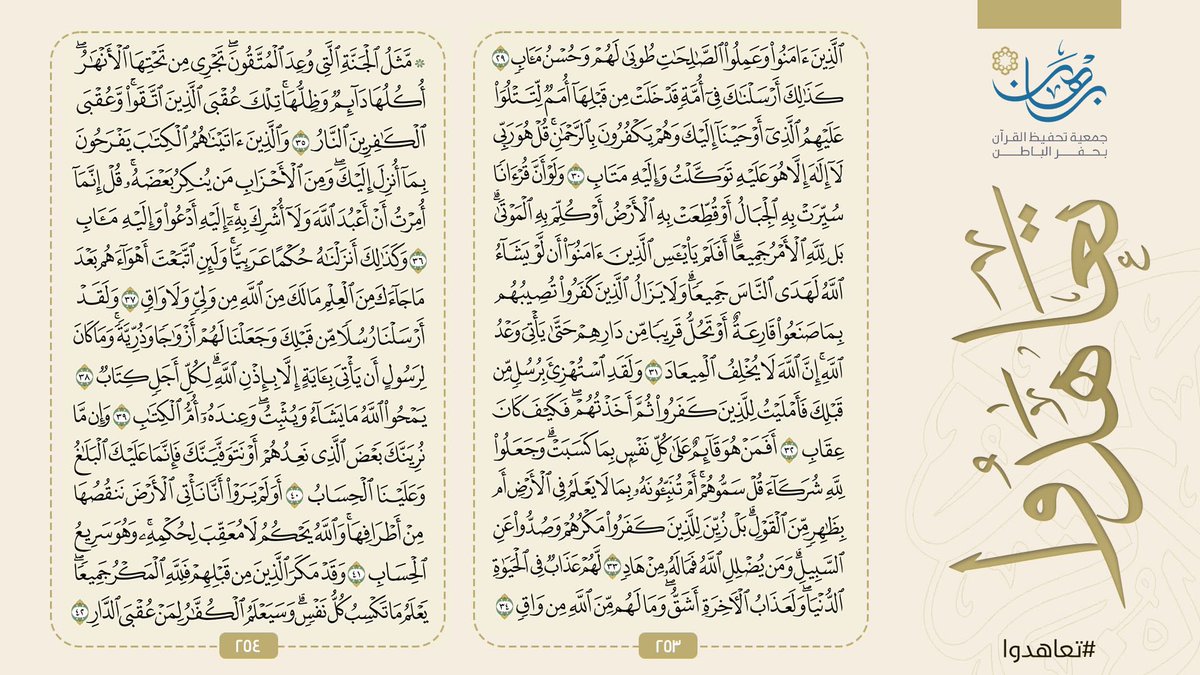 برهان
جمعية تحفيظ القرآن
بحفر الباطن
تعاهدوا
#تعاهدوا
ٱلَّذِينَ ءَامَنُواْ وَعَمِلُواْ ٱلصَّٰلِحَٰتِ طُوبَىٰ لَهُمۡ وَحُسۡنُ مَـَٔابٖ ٢٩
كَذَٰلِكَ أَرۡسَلۡنَٰكَ فِيٓ أُمَّةٖ قَدۡ خَلَتۡ مِن قَبۡلِهَآ أُمَمٞ لِّتَتۡلُوَاْ
عَلَيۡهِمُ ٱلَّذِيٓ أَوۡحَيۡنَآ إِلَيۡكَ وَهُمۡ يَكۡفُرُونَ بِٱلرَّحۡمَٰنِۚ قُلۡ هُوَ رَبِّي
لَآ إِلَٰهَ إِلَّا هُوَ عَلَيۡهِ تَوَكَّلۡتُ وَإِلَيۡهِ مَتَابِ ٣٠ وَلَوۡ أَنَّ قُرۡءَانٗا
سُيِّرَتۡ بِهِ ٱلۡجِبَالُ أَوۡ قُطِّعَتۡ بِهِ ٱلۡأَرۡضُ أَوۡ كُلِّمَ بِهِ ٱلۡمَوۡتَىٰۗ
بَل لِّلَّهِ ٱلۡأَمۡرُ جَمِيعًاۗ أَفَلَمۡ يَاْيۡـَٔسِ ٱلَّذِينَ ءَامَنُوٓاْ أَن لَّوۡ يَشَآءُ
ٱللَّهُ لَهَدَى ٱلنَّاسَ جَمِيعٗاۗ وَلَا يَزَالُ ٱلَّذِينَ كَفَرُواْ تُصِيبُهُم
بِمَا صَنَعُواْ قَارِعَةٌ أَوۡ تَحُلُّ قَرِيبٗا مِّن دَارِهِمۡ حَتَّىٰ يَأۡتِيَ وَعۡدُ
ٱللَّهِۚ إِنَّ ٱللَّهَ لَا يُخۡلِفُ ٱلۡمِيعَادَ ٣١ وَلَقَدِ ٱسۡتُهۡزِئَ بِرُسُلٖ مِّن
قَبۡلِكَ فَأَمۡلَيۡتُ لِلَّذِينَ كَفَرُواْ ثُمَّ أَخَذۡتُهُمۡۖ فَكَيۡفَ كَانَ
عِقَابِ ٣٢ أَفَمَنۡ هُوَ قَآئِمٌ عَلَىٰ كُلِّ نَفۡسِۭ بِمَا كَسَبَتۡۗ وَجَعَلُواْ
لِلَّهِ شُرَكَآءَ قُلۡ سَمُّوهُمۡۚ أَمۡ تُنَبِّـُٔونَهُۥ بِمَا لَا يَعۡلَمُ فِي ٱلۡأَرۡضِ أَم
بِظَٰهِرٖ مِّنَ ٱلۡقَوۡلِۗ بَلۡ زُيِّنَ لِلَّذِينَ كَفَرُواْ مَكۡرُهُمۡ وَصُدُّواْ عَنِ
ٱلسَّبِيلِۗ وَمَن يُضۡلِلِ ٱللَّهُ فَمَا لَهُۥ مِنۡ هَادٖ ٣٣ لَّهُمۡ عَذَابٞ فِي ٱلۡحَيَوٰةِ
ٱلدُّنۡيَاۖ وَلَعَذَابُ ٱلۡأٓخِرَةِ أَشَقُّۖ وَمَا لَهُم مِّنَ ٱللَّهِ مِن وَاقٖ ٣٤
٢٥٣
۞ مَّثَلُ ٱلۡجَنَّةِ ٱلَّتِي وُعِدَ ٱلۡمُتَّقُونَۖ تَجۡرِي مِن تَحۡتِهَا ٱلۡأَنۡهَٰرُۖ
أُكُلُهَا دَآئِمٞ وَظِلُّهَاۚ تِلۡكَ عُقۡبَى ٱلَّذِينَ ٱتَّقَواْۚ وَّعُقۡبَى
ٱلۡكَٰفِرِينَ ٱلنَّارُ ٣٥ وَٱلَّذِينَ ءَاتَيۡنَٰهُمُ ٱلۡكِتَٰبَ يَفۡرَحُونَ
بِمَآ أُنزِلَ إِلَيۡكَۖ وَمِنَ ٱلۡأَحۡزَابِ مَن يُنكِرُ بَعۡضَهُۥۚ قُلۡ إِنَّمَآ
أُمِرۡتُ أَنۡ أَعۡبُدَ ٱللَّهَ وَلَآ أُشۡرِكَ بِهِۦٓۚ إِلَيۡهِ أَدۡعُواْ وَإِلَيۡهِ مَـَٔابِ
٣٦ وَكَذَٰلِكَ أَنزَلۡنَٰهُ حُكۡمًا عَرَبِيّٗاۚ وَلَئِنِ ٱتَّبَعۡتَ أَهۡوَآءَهُم بَعۡدَ
مَا جَآءَكَ مِنَ ٱلۡعِلۡمِ مَا لَكَ مِنَ ٱللَّهِ مِن وَلِيّٖ وَلَا وَاقٖ ٣٧ وَلَقَدۡ
أَرۡسَلۡنَا رُسُلٗا مِّن قَبۡلِكَ وَجَعَلۡنَا لَهُمۡ أَزۡوَٰجٗا وَذُرِّيَّةٗۚ وَمَا كَانَ
لِرَسُولٍ أَن يَأۡتِيَ بِـَٔايَةٍ إِلَّا بِإِذۡنِ ٱللَّهِۗ لِكُلِّ أَجَلٖ كِتَابٞ ٣٨
يَمۡحُواْ ٱللَّهُ مَا يَشَآءُ وَيُثۡبِتُۖ وَعِندَهُۥٓ أُمُّ ٱلۡكِتَٰبِ ٣٩ وَإِن مَّا
نُرِيَنَّكَ بَعۡضَ ٱلَّذِي نَعِدُهُمۡ أَوۡ نَتَوَفَّيَنَّكَ فَإِنَّمَا عَلَيۡكَ ٱلۡبَلَٰغُ
وَعَلَيۡنَا ٱلۡحِسَابُ ٤٠ أَوَلَمۡ يَرَوۡاْ أَنَّا نَأۡتِي ٱلۡأَرۡضَ نَنقُصُهَا
مِنۡ أَطۡرَافِهَاۚ وَٱللَّهُ يَحۡكُمُ لَا مُعَقِّبَ لِحُكۡمِهِۦۚ وَهُوَ سَرِيعُ
ٱلۡحِسَابِ ٤١ وَقَدۡ مَكَرَ ٱلَّذِينَ مِن قَبۡلِهِمۡ فَلِلَّهِ ٱلۡمَكۡرُ جَمِيعٗاۖ
يَعۡلَمُ مَا تَكۡسِبُ كُلُّ نَفۡسٖۗ وَسَيَعۡلَمُ ٱلۡكُفَّٰرُ لِمَنۡ عُقۡبَى ٱلدَّارِ ٤٢
٢٥٤